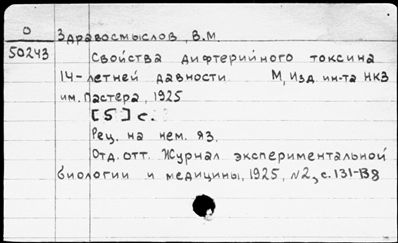 О
50243
Здравосмыслов, В.М.
Свойства дифтерийного токсина
14-летней давности М, Изд. ин-та НКЗ
им. Пастера, 1925
[5] с.
Рец. на нем. яз.
Отд. отт. Журнал экспериментальной
биологии и медицины, 1925, №2, с. 131-138